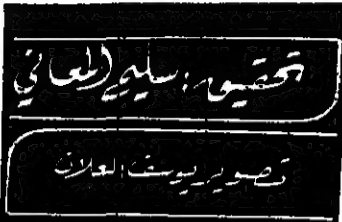 تحقيق: سليم المعاني
تصوير يوسف العلان